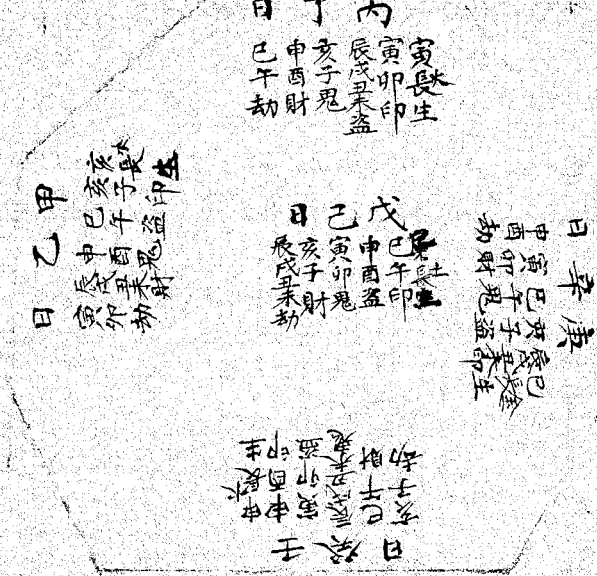 丙丁日
寅火長生
寅卯印
辰戌丑未盜
亥子鬼
申酉財
巳午劫
甲乙日
亥木長生
亥子印
巳午盜
申酉鬼
辰戌丑未財
寅卯劫
戊己日
土長生
巳午印
申酉盜
寅卯鬼
亥子財
辰戌丑未劫
庚辛日
巳金長生
辰戌丑未印
亥子盜
巳午鬼
寅卯財
申酉劫
壬癸日
申水長生
申酉印
寅卯盜
辰戌丑未鬼
巳午財
亥子劫